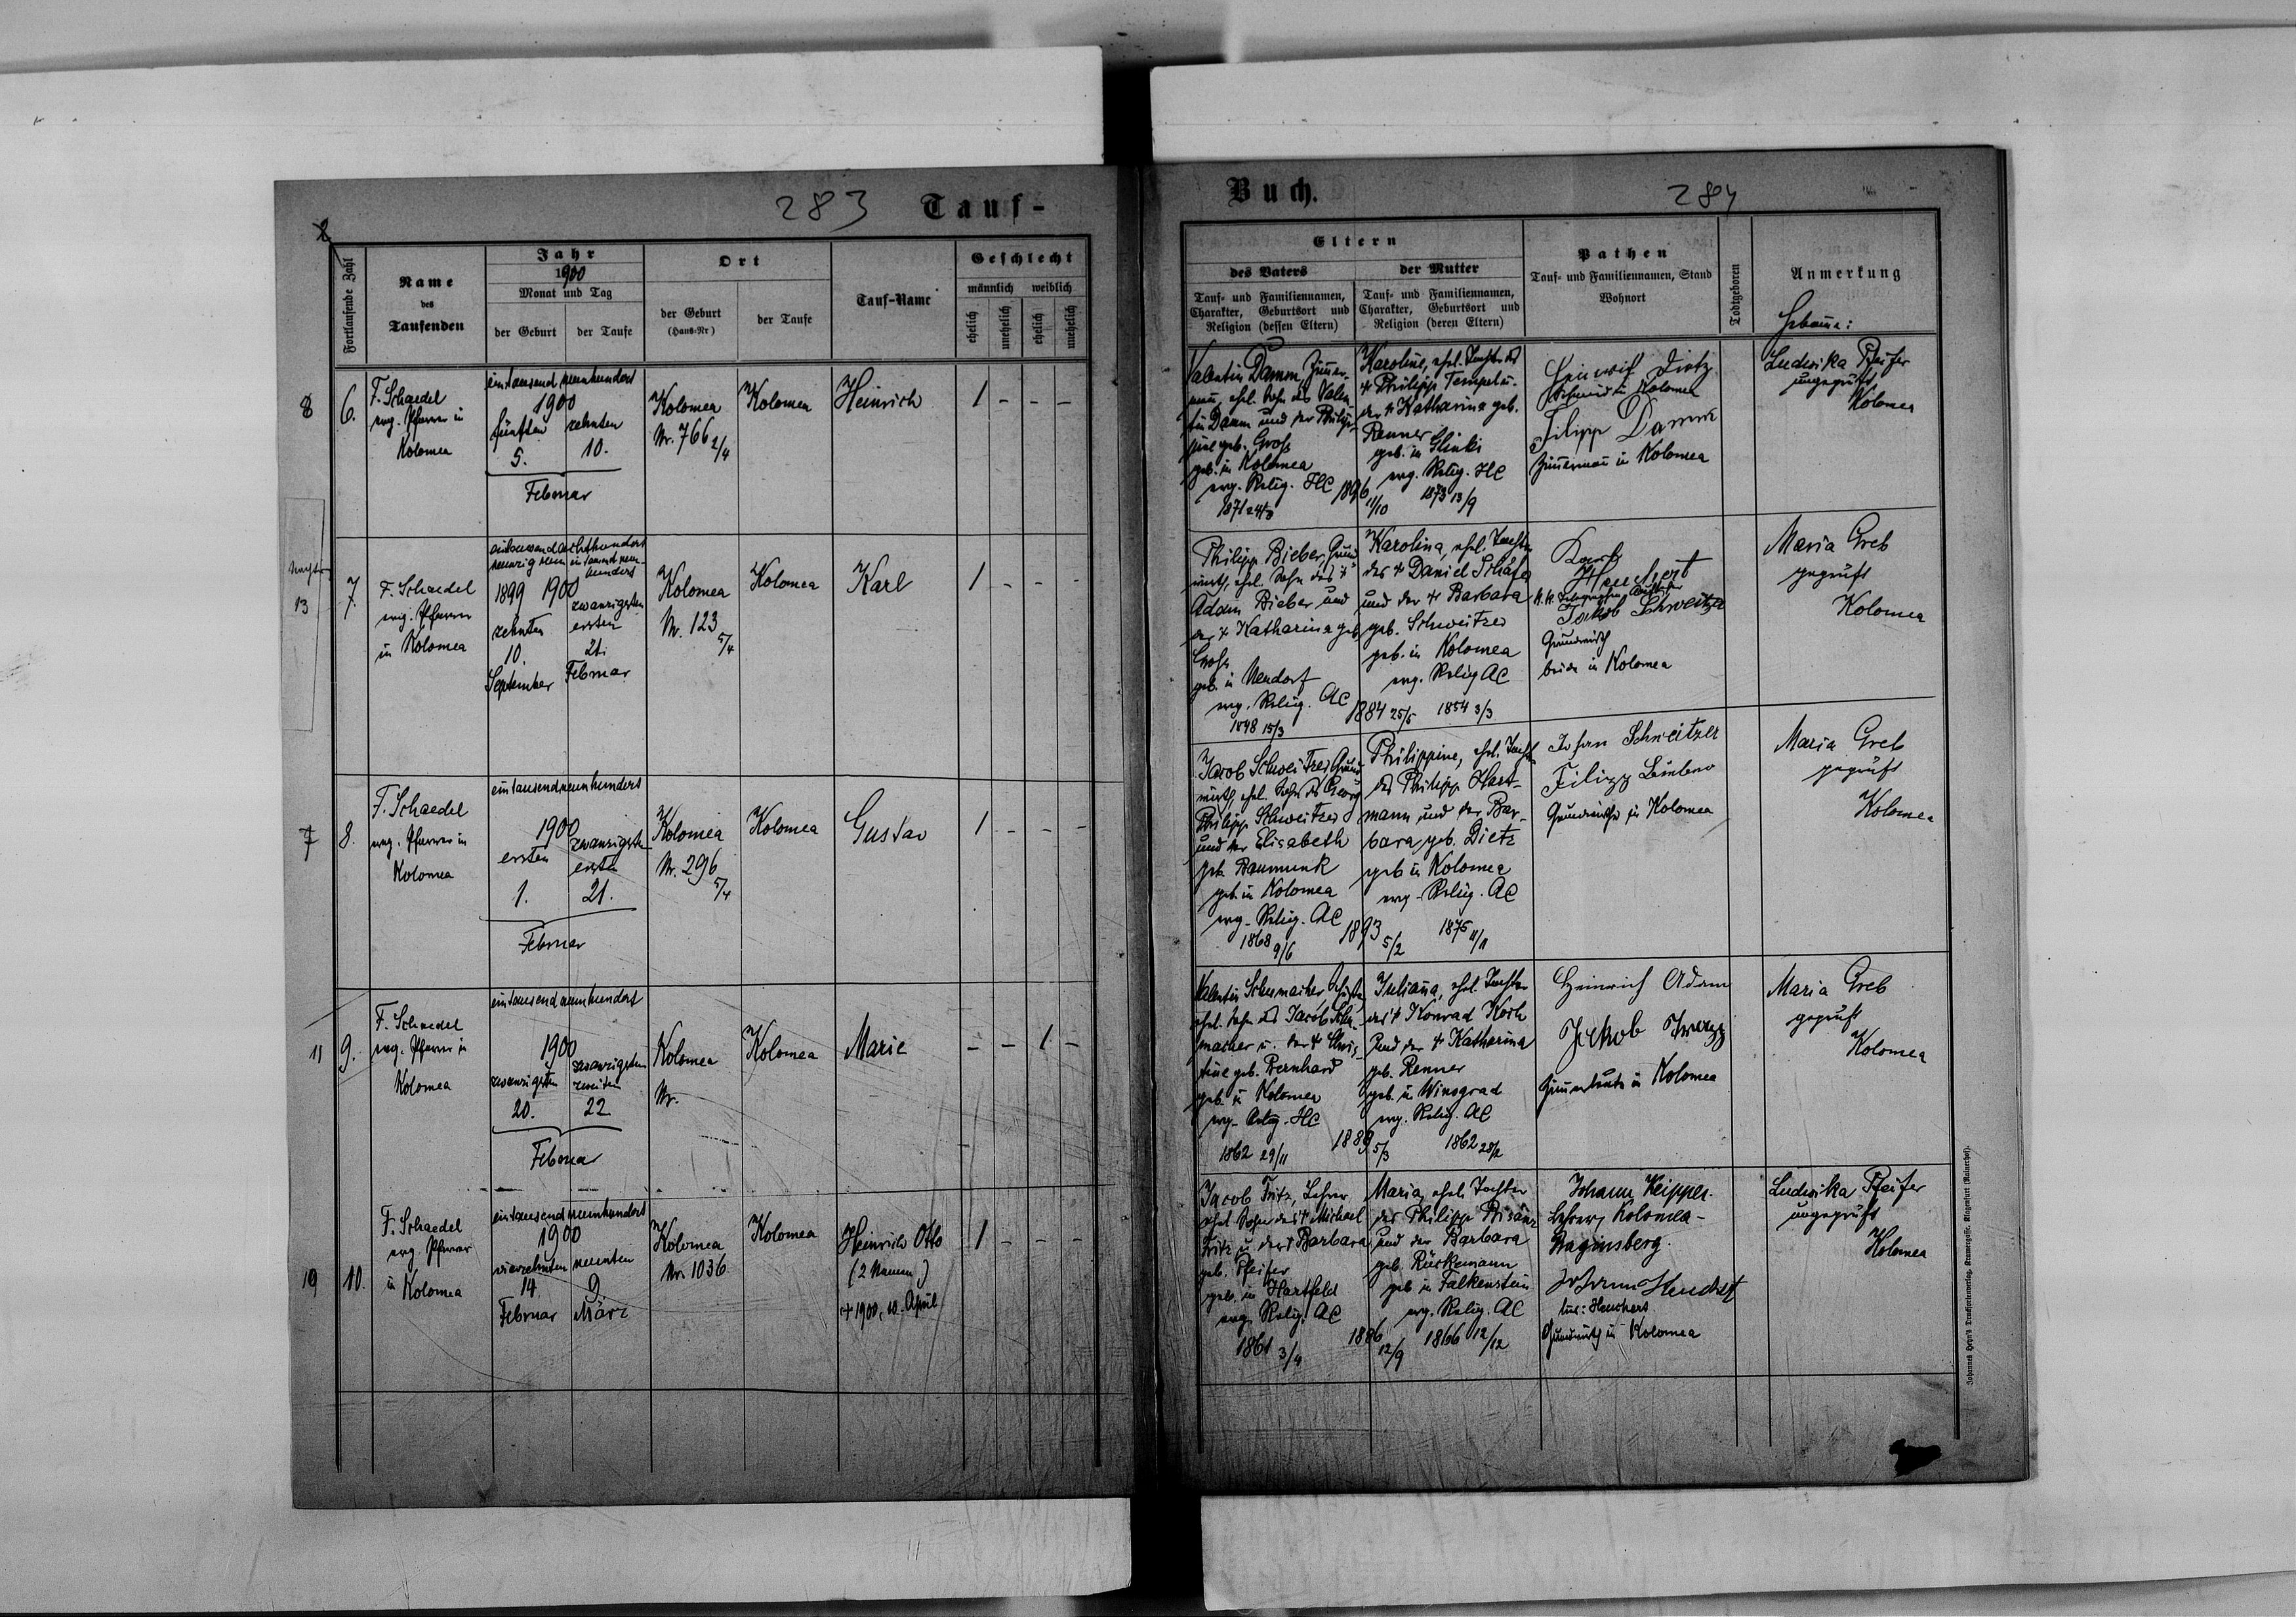 283 Tauf-
Fortlaufende Zahl
Name
des
Taufenden
Jahr
1900
Monat und Tag
der Geburt
der Taufe
Ort
der Geburt
(Haus-Nr)
der Taufe
Tauf-Name
Geschlecht
männlich weiblich
ehelich
unehelich
ehelich
unehelich
8
6.
F. Schaedel
evg. Pfarrer in
Kolomea
eintausend neunhundert
1900
fünften zehnten
5. 10.
Februar
Kolomea
Nr. 766 2/4
Kolomea
Heinrich
1 - - -
13
7.
F. Schaedel
evg. Pfarrer
in Kolomea
eintausendachthundert
neunzig neun eintausend neun-
hundert
1899 1900
zehnten zwanzigsten
ersten
10. 21.
September Februar
Kolomea
Nr. 123
5/4
Kolomea
Karl
1 - - -
7
8.
F. Schaedel
evg. Pfarrer in
Kolomea
eintausendneunhundert
1900
ersten zwanzigsten
ersten
1. 21.
Februar
Kolomea
Nr. 296
5/4
Kolomea
Gustav
1 - - -
11
9.
F. Schaedel
evg. Pfarrer in
Kolomea
eintausend neunhundert
1900
zwanzigsten zwanzigsten
zweiten
20. 22
Februar
Kolomea
Nr.
Kolomea
Marie
- - 1 -
19
10.
F. Schaedel
evg. Pfarrer
in Kolomea
eintausend neunhundert
1900
vierzehnten neunten
14 9.
Februar März
Kolomea
Nr. 1036
Kolomea
Heinrich Otto
(2 Namen)
+ 1900, 10. April
1 - - -
Buch. 284
Eltern
des Vaters
Tauf- und Familiennamen,
Charakter, Geburtsort und
Religion (dessen Eltern)
der Mutter
Tauf- und Familiennamen,
Charakter, Geburtsort und
Religion (deren Eltern)
Pathen
Tauf- und Familiennamen, Stand
Wohnort
Todtgeboren
Anmerkung
Hebamme:
Valentin Damm, Zimmer-
mann, ehel. Sohn des Valen-
tin Damm und der Philip-
pine geb. Groß
geb. in Kolomea
evg. Relig. HC
1871 24/3
1896
11/10
Karoline, ehel. Tochter des
+ Philipp Tempel u.
der + Katharina geb.
Renner
geb. in Slinki
evg. Relig. HC
1873 13/9
Heinrich Dietz
Schmied in Kolomea
Filipp Damm
Zimmermann in Kolomea
Ludwika Pfeifer
ungeprüft
Kolomea
Philipp Bieber, Grund-
wirth, ehel. Sohn des +
Adam Bieber und
der + Katharina geb.
Groß
geb. in Neudorf
evg. Relig. AC
1848 15/3
1884 25/5
Karolina, ehel. Tochter
des + Daniel Schäfer
und der + Barbara
geb. Schweitzer
geb. in Kolomea
evg. Relig AC
1854 3/3
Karl
Heuchert
Jakob Schweitzer
Grundwirth
beide in Kolomea
Maria Greb
geprüft
Kolomea
Jacob Schweitzer, Grund-
wirth, ehel. Sohn des Georg
Philipp Schweitzer
und der Elisabeth
geb. Baumunk
geb. in Kolomea
evg. Relig. AC
1868
9/6
1893
5/2
Philippine, ehel. Tochter
des Philipp Hart-
mann und der Bar-
bara, geb. Dietz
geb in Kolomea
evg. Relig. AC
1875
11/11
Johan Schweitzer
Filipp
Grundwirthe in Kolomea
Maria Greb
geprüft
Kolomea
Valentin Schumacher
ehel. Sohn des Jacob Schu-
macher u. der + Chris-
tine geb. Bernhard
geb. in Kolomea
evg. Relig. HC
1862 29/11
1889
5/3
Juliana, ehel. Tochter
des + Konrad Koch
und der + Katharina
geb. Renner
geb. in Winograd
evg. Relig. AC
1862
Heinrich Adam
Jakob
Zimmerleute in Kolomea
Maria Greb
geprüft
Kolomea
Jacob Fritz, Lehrer
ehel. Sohn des + Michael
Fritz u. der + Barbara
geb. Pfeifer
geb. in Hartfeld
evg. Relig. AC
1861 3/4
1886
12/9
Maria, ehel. Tochter
des Philipp Bisanz
und der Barbara
geb. Rückemann
geb. in Falkenstein
evg. Relig. AC
1866 12/12
Johann Keipper
Lehrer, Kolomea-
Baginsberg.
Johann Heuchert
Grundwirth in Kolomea
Ludwika Pfeifer
ungeprüft
Kolomea